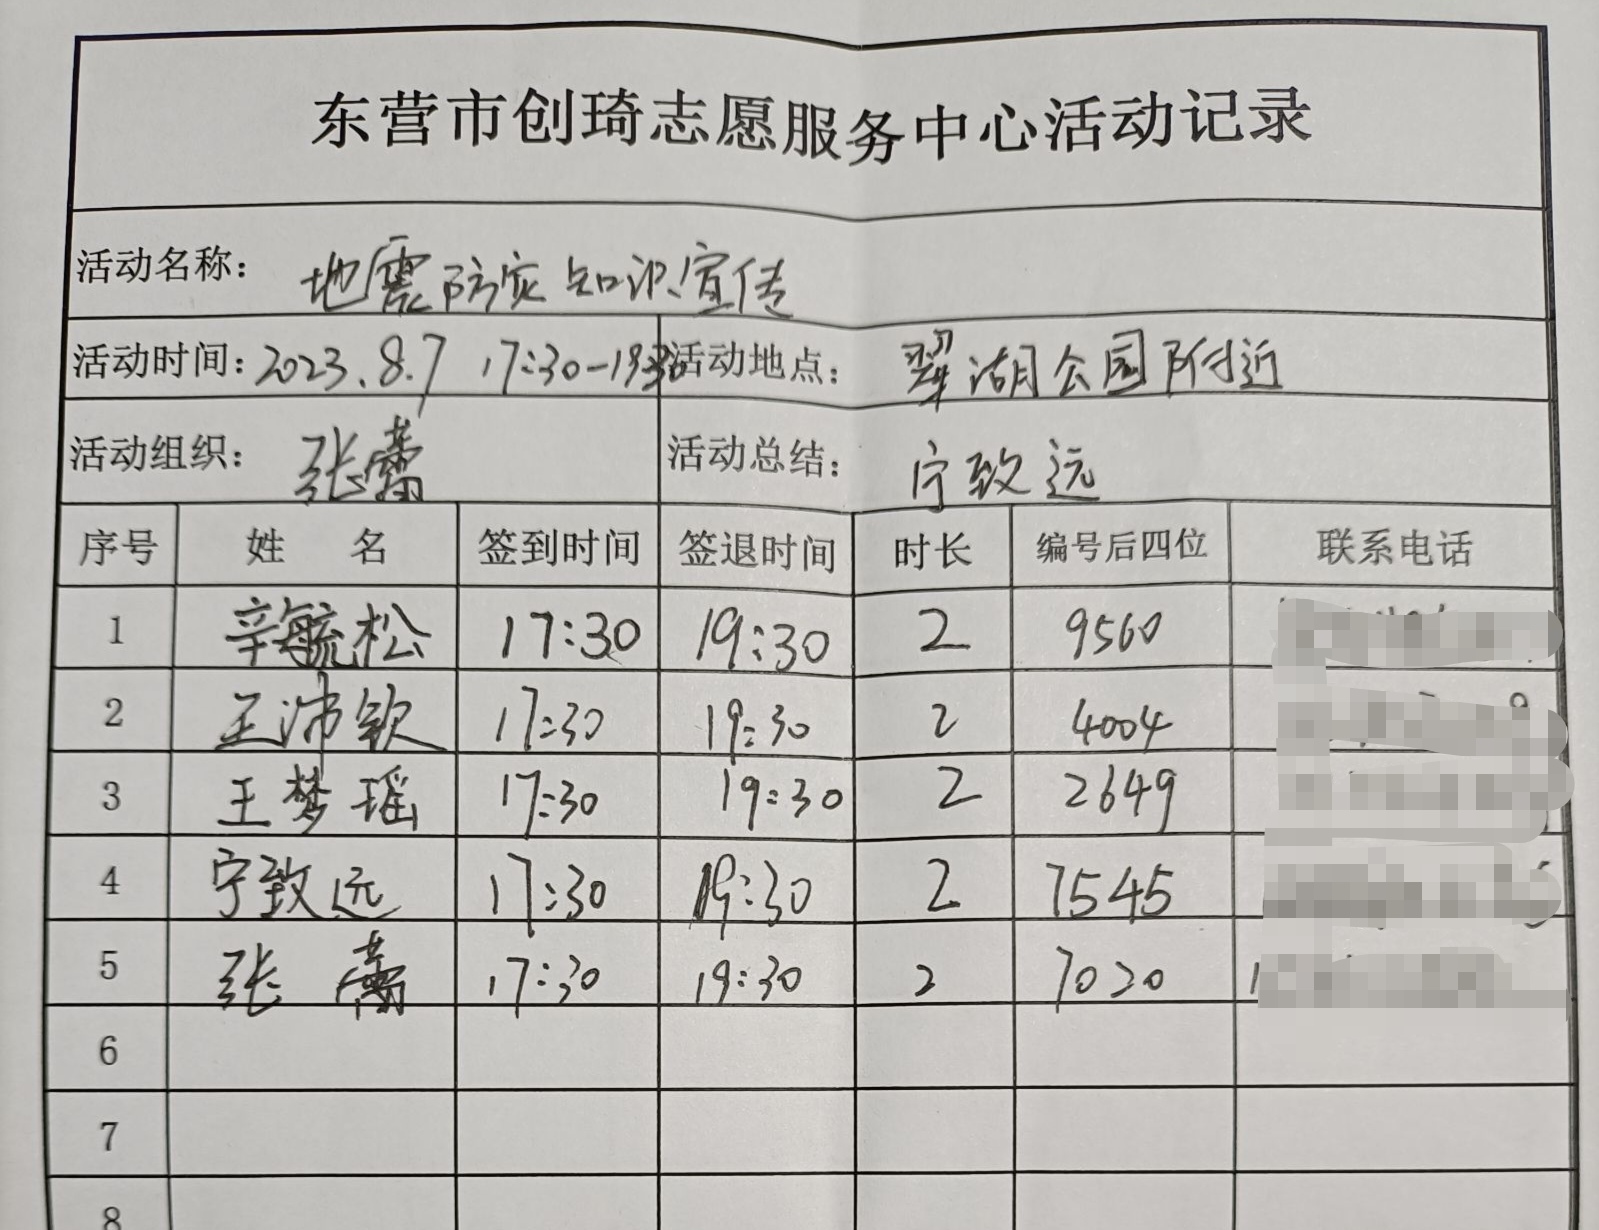 东营市创琦志愿服务中心活动记录
活动名称： 地震防灾知识宣传
活动时间：2023.8.7 17:30-19:30 活动地点： 翠湖公园附近
活动组织： 张蕾 活动总结： 宁致远
序号 姓 名 签到时间 签退时间 时长 编号后四位 联系电话
1 辛毓松 17:30 19:30 2 9560
2 王沛钦 17:30 19:30 2 4004
3 王梦瑶 17:30 19:30 2 2649
4 宁致远 17:30 19:30 2 7545
5 张蕾 17:30 19:30 2 7020
6
7
8